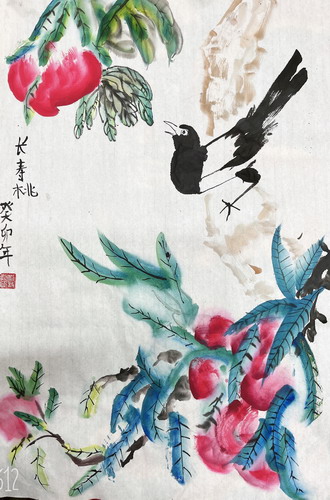 长寿桃
癸卯年
512